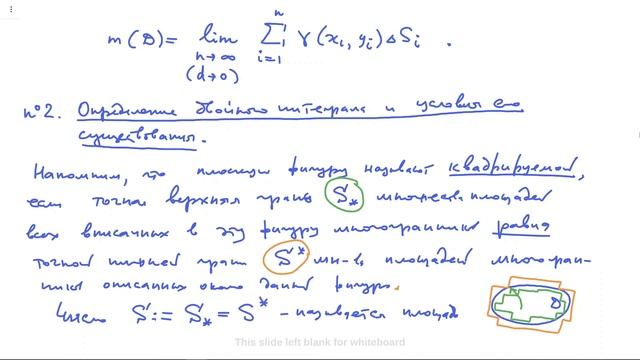 m(D) = lim Σ γ(xᵢ, yᵢ) ΔSᵢ .
n→∞ i=1 n
(d→0)
n°2. Определение двойного интеграла и условия его
существования.
Напомним, что плоскую фигуру называют квадрируемой,
если точная верхняя грань S* множества площадей
всех вписанных в эту фигуру многогранников равна
точной нижней грани S* мн-ва площадей многогран-
ников описанных около данной фигуры.
Число S := S* = S* – называется площадь
D
This slide left blank for whiteboard